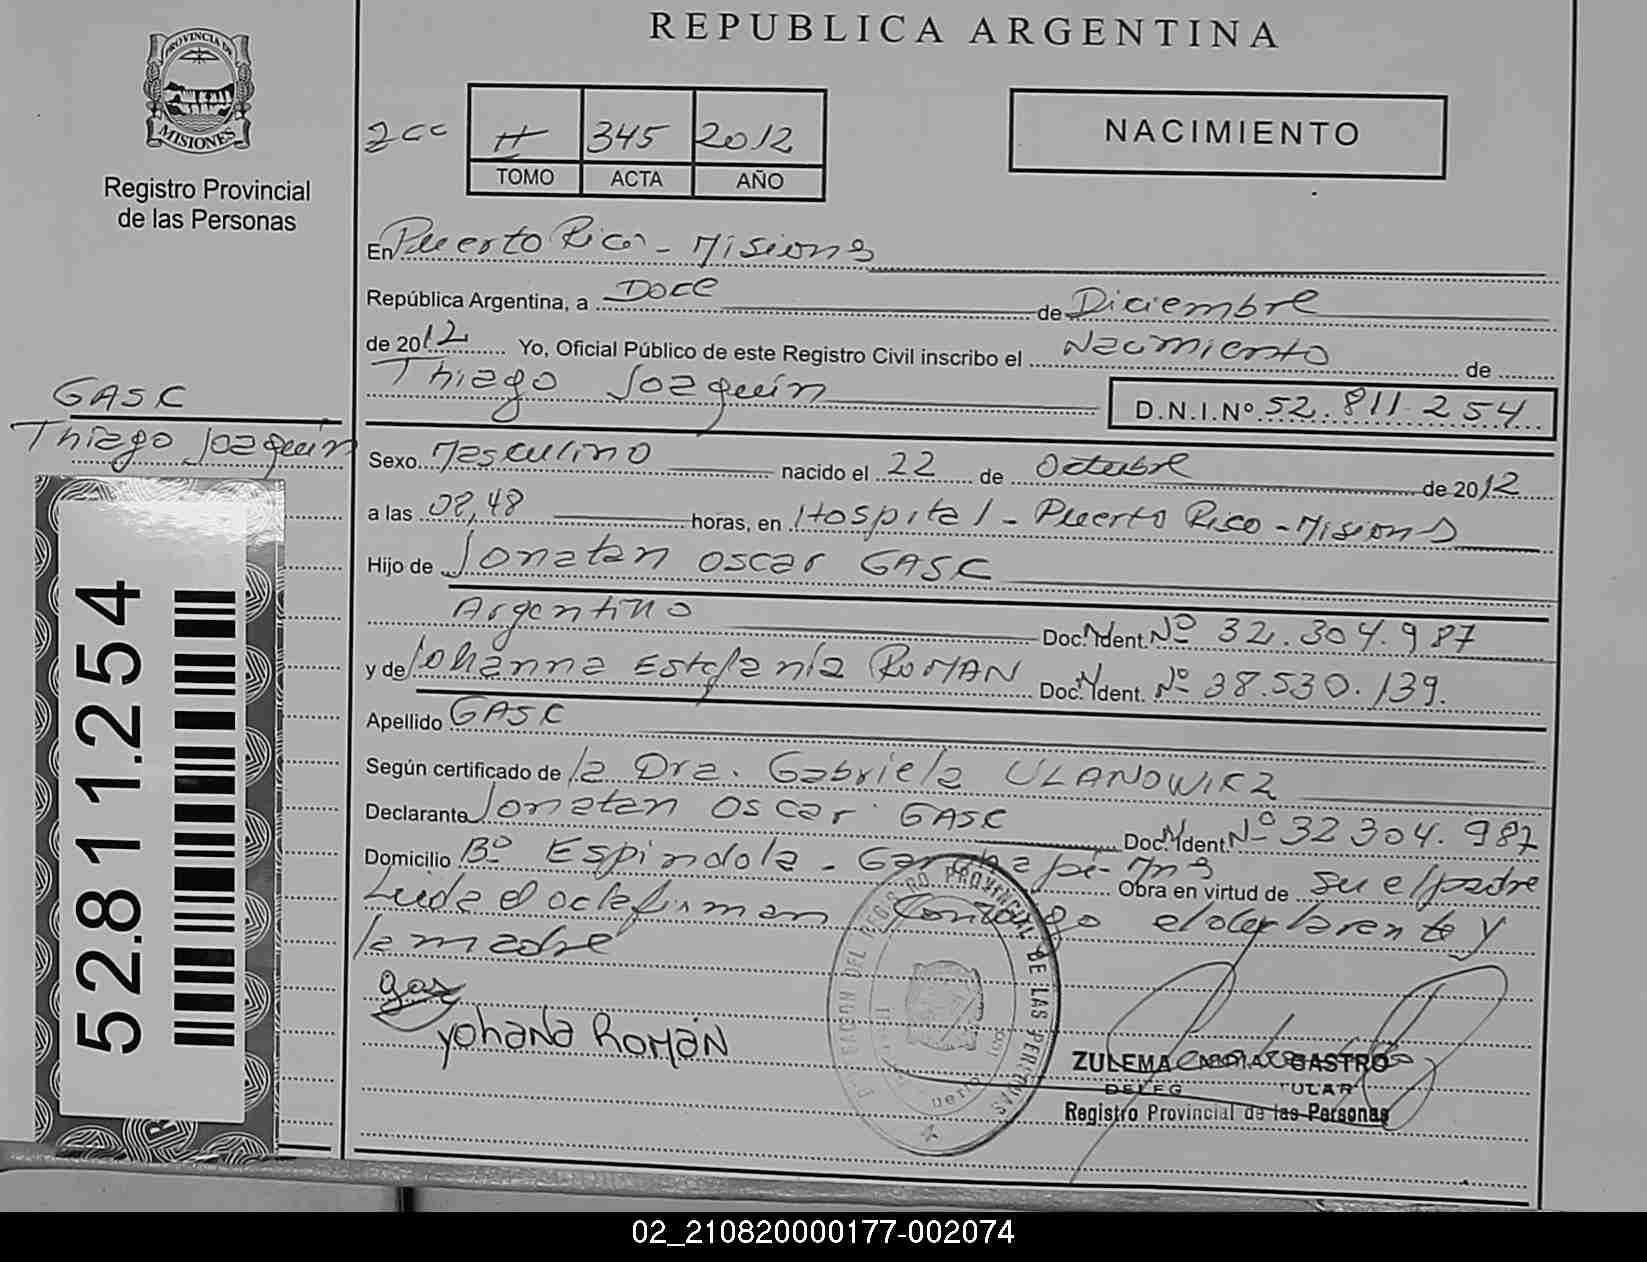 REPUBLICA ARGENTINA
PROVINCIA DE
MISIONES
Registro Provincial
de las Personas
TOMO
345 ACTA
2012 AÑO
NACIMIENTO
En Puerto Rico - Misiones
República Argentina, a Doce de Diciembre
de 2012 Yo, Oficial Público de este Registro Civil inscribo el Nacimiento de
Thiago Joaquín D.N.I.Nº 52.811.254
GASC
Thiago Joaquín
Sexo Masculino nacido el 22 de Octubre de 2012
a las 08,48 horas, en Hospital - Puerto Rico - Misiones
Hijo de Jonatan Oscar GASC
Argentino Doc. Ident. Nº 32.304.987
y de Johanna Estefanía ROMAN Doc. Ident. Nº 38.530.139.
Apellido GASC
Según certificado de la Dra. Gabriela ULANOWIKZ
Declarante Jonatan Oscar GASC Doc. Ident. Nº 32 304.987
Domicilio Bº Espindola - Garuhapé - Mns Obra en virtud de su el padre
Leída el acta firman Conmigo el declarante y
la madre
Yohana Román
REGISTRO PROVINCIAL DE LAS PERSONAS
ZULEMA CASTRO
Registro Provincial de las Personas
52.811.254
02_210820000177-002074